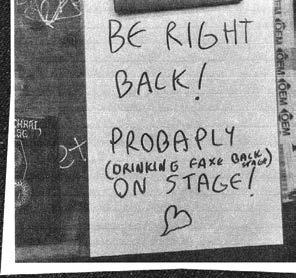 BE RIGHT
BACK!
PROBAPLY
(DRINKING FAXE BACK STAGE)
ON STAGE!
2x
ÖEM ÖEM ÖEM ÖEM